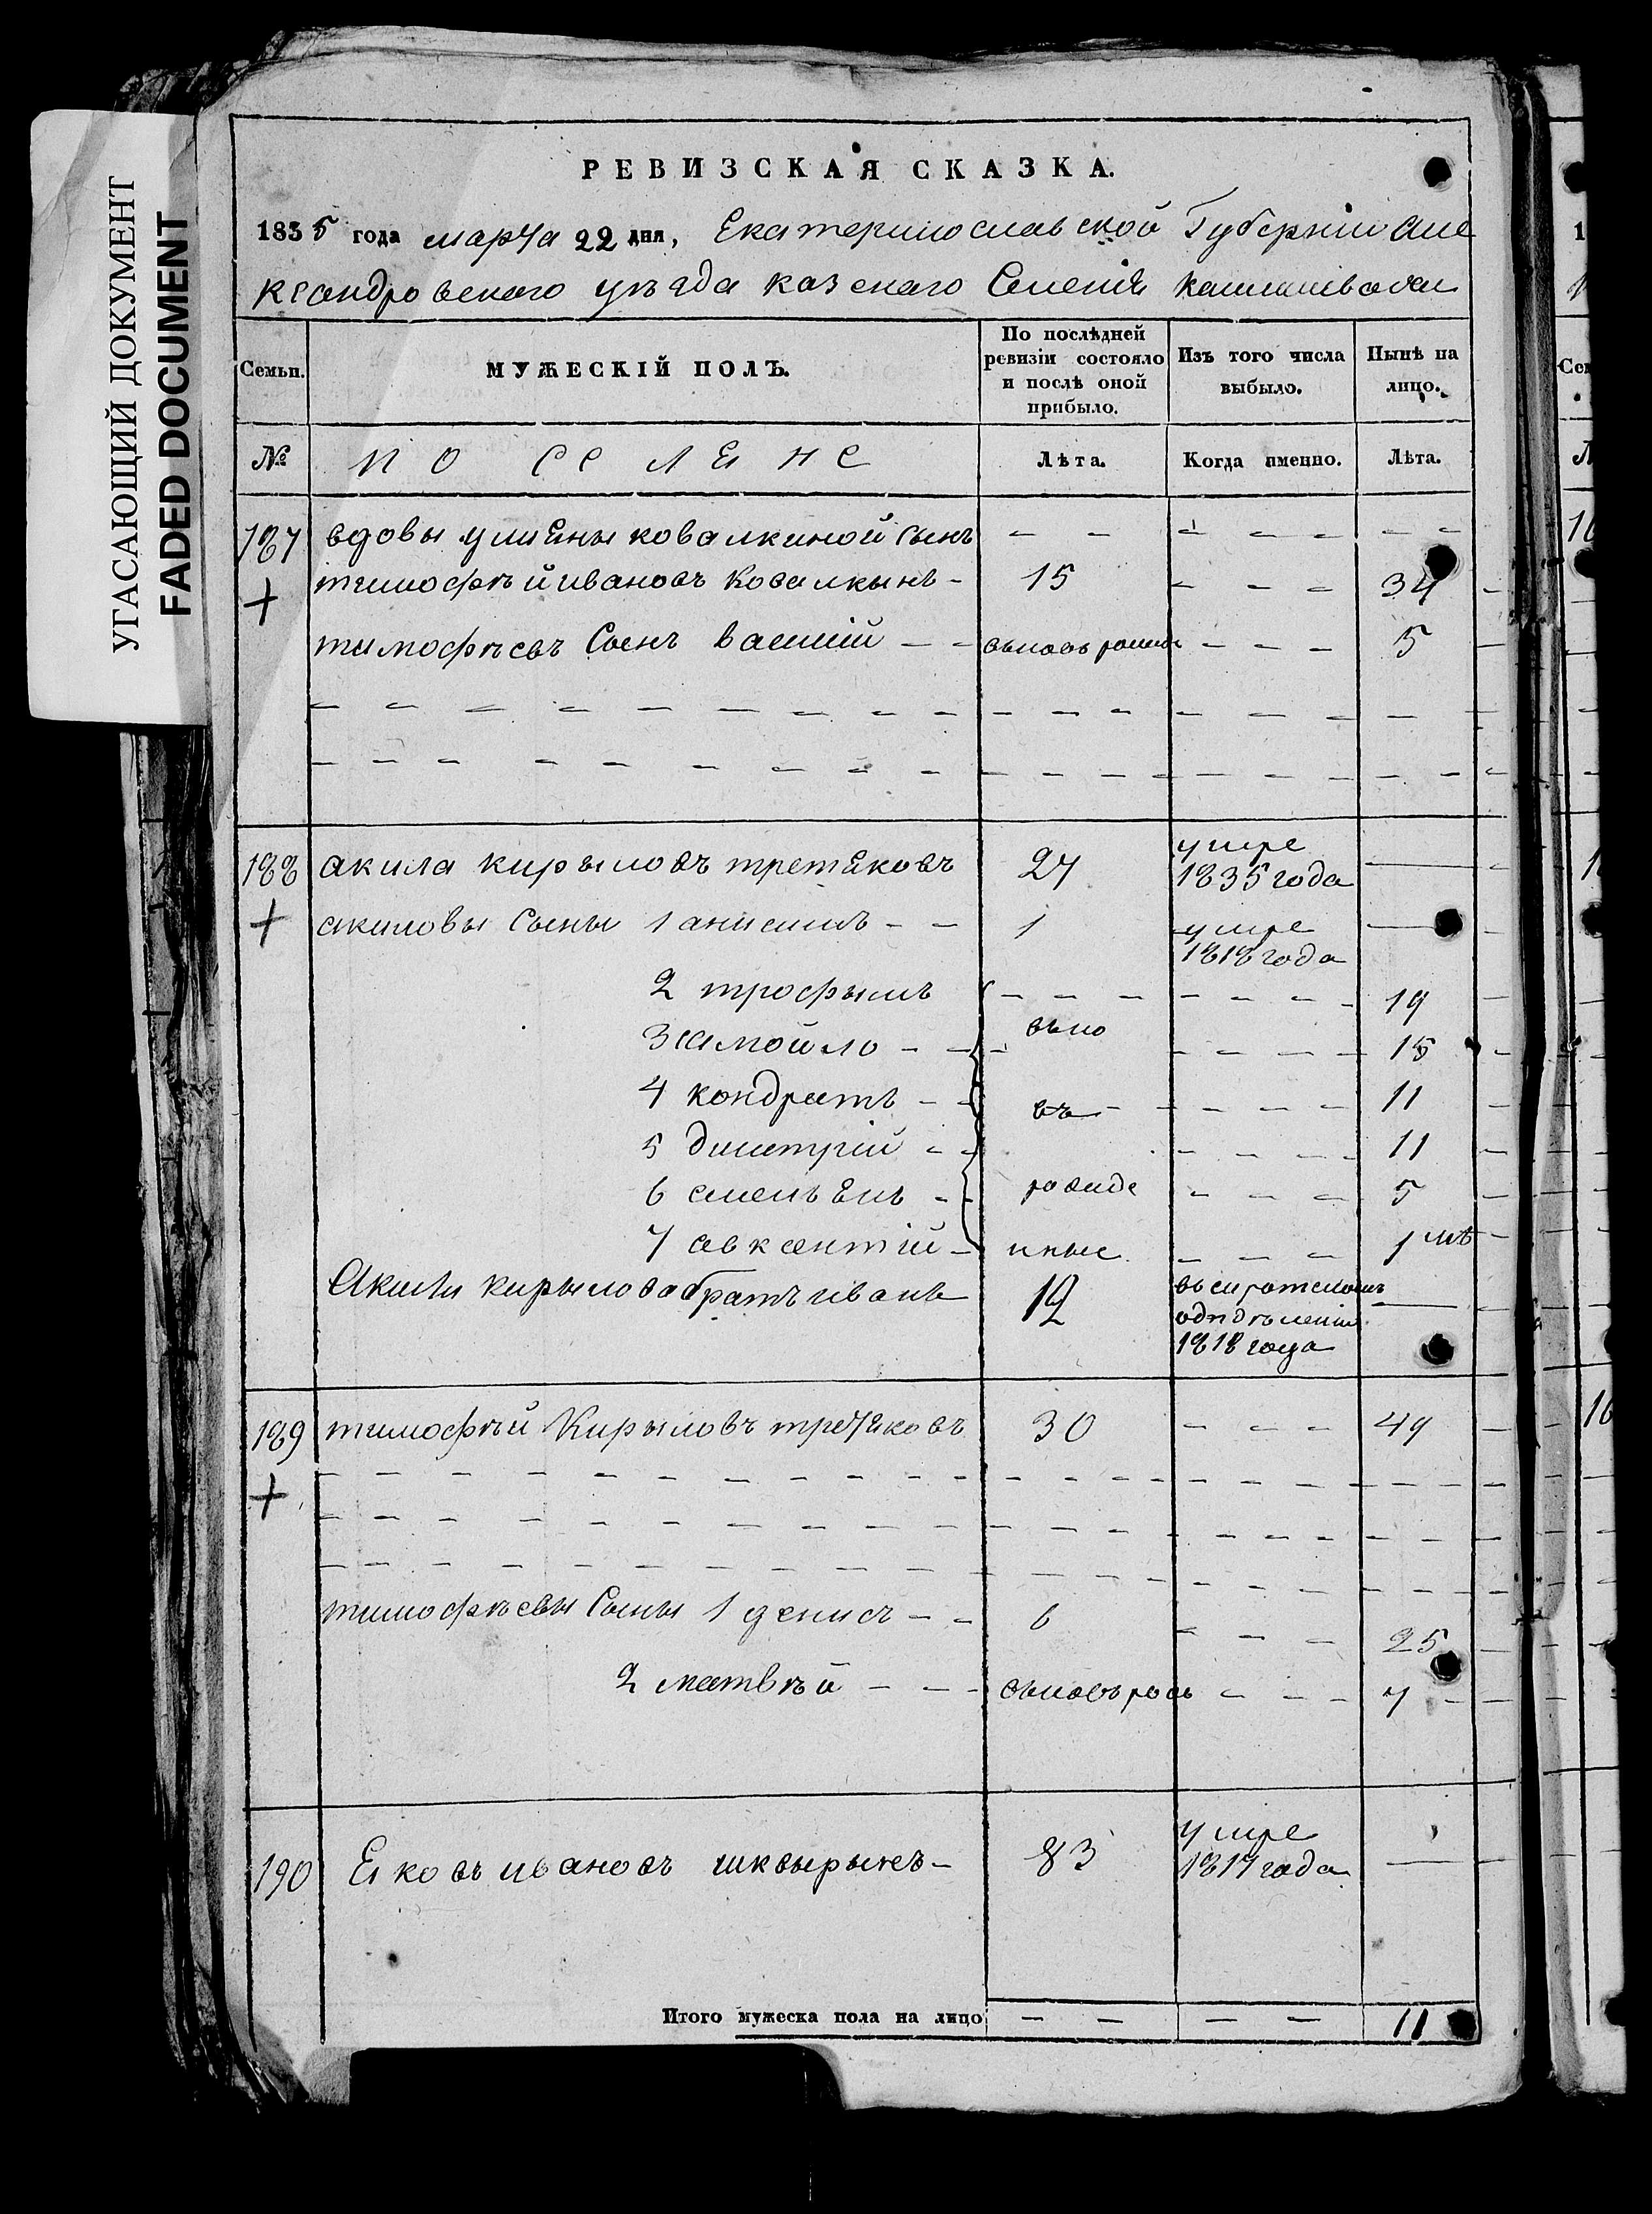 УГАСАЮЩИЙ ДОКУМЕНТ
FADED DOCUMENT
РЕВИЗСКАЯ СКАЗКА.
1835 года марта 22 дня, Екатеринославской Губерніи Але
ксандровского уъзда казенаго Селенія
Семьи.
МУЖЕСКІЙ ПОЛЪ.
По послѣдней ревизіи состояло и послѣ оной прибыло.
Изъ того числа выбыло.
Нынѣ на лицо.
№
ПОСЕЛЕНЕ
Лѣта.
Когда именно.
Лѣта.
187 вдовы улияны ковалкиной сынъ
тимофѣй ивановъ ковалкынъ 15 34
тимофѣевъ Сынъ василій вьновь рожде 5
188 акила кирыловъ третяковъ 27 умре 1835 года
акиловы Сыны 1 анисимъ 1 умре 1818 года
2 трофымъ 19
3 самойло вьно 15
4 кондратъ въ 11
5 димитрій 11
6 емельянъ рожде 5
7 авксентій нные 1 мѣ
Акилы кирылова братъ иванъ 12 1818 года
189 тимофѣй Кирыловъ третяковъ 30 49
тимофѣевы Сыны 1 денисъ 6 25
2 матвѣй вьновъ рож 7
190 Яковъ ивановъ шквырынъ 83 умре 1817 года
Итого мужеска пола на лицо 11